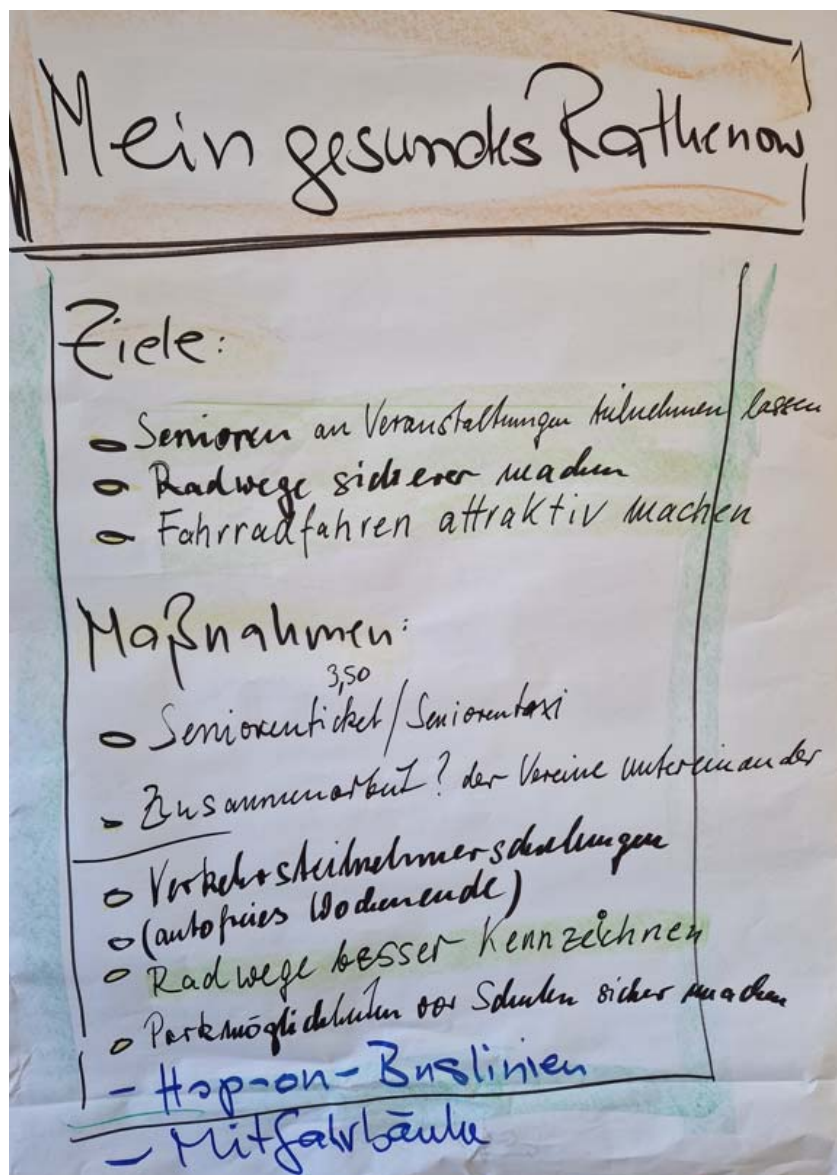 Mein gesundes Rathenow
Ziele:
Senioren an Veranstaltungen teilnehmen lassen
Radwege sicherer machen
Fahrradfahren attraktiv machen
Maßnahmen:
3,50
Seniorenticket / Seniorentaxi
- Zusammenarbeit? der Vereine untereinander
Verkehrsteilnehmerschulungen
(autofreies Wochenende)
Radwege besser Kennzeichnen
Parkmöglichkeiten vor Schulen sicher machen
- Hop-on-Buslinien
- Mitfahrbänke